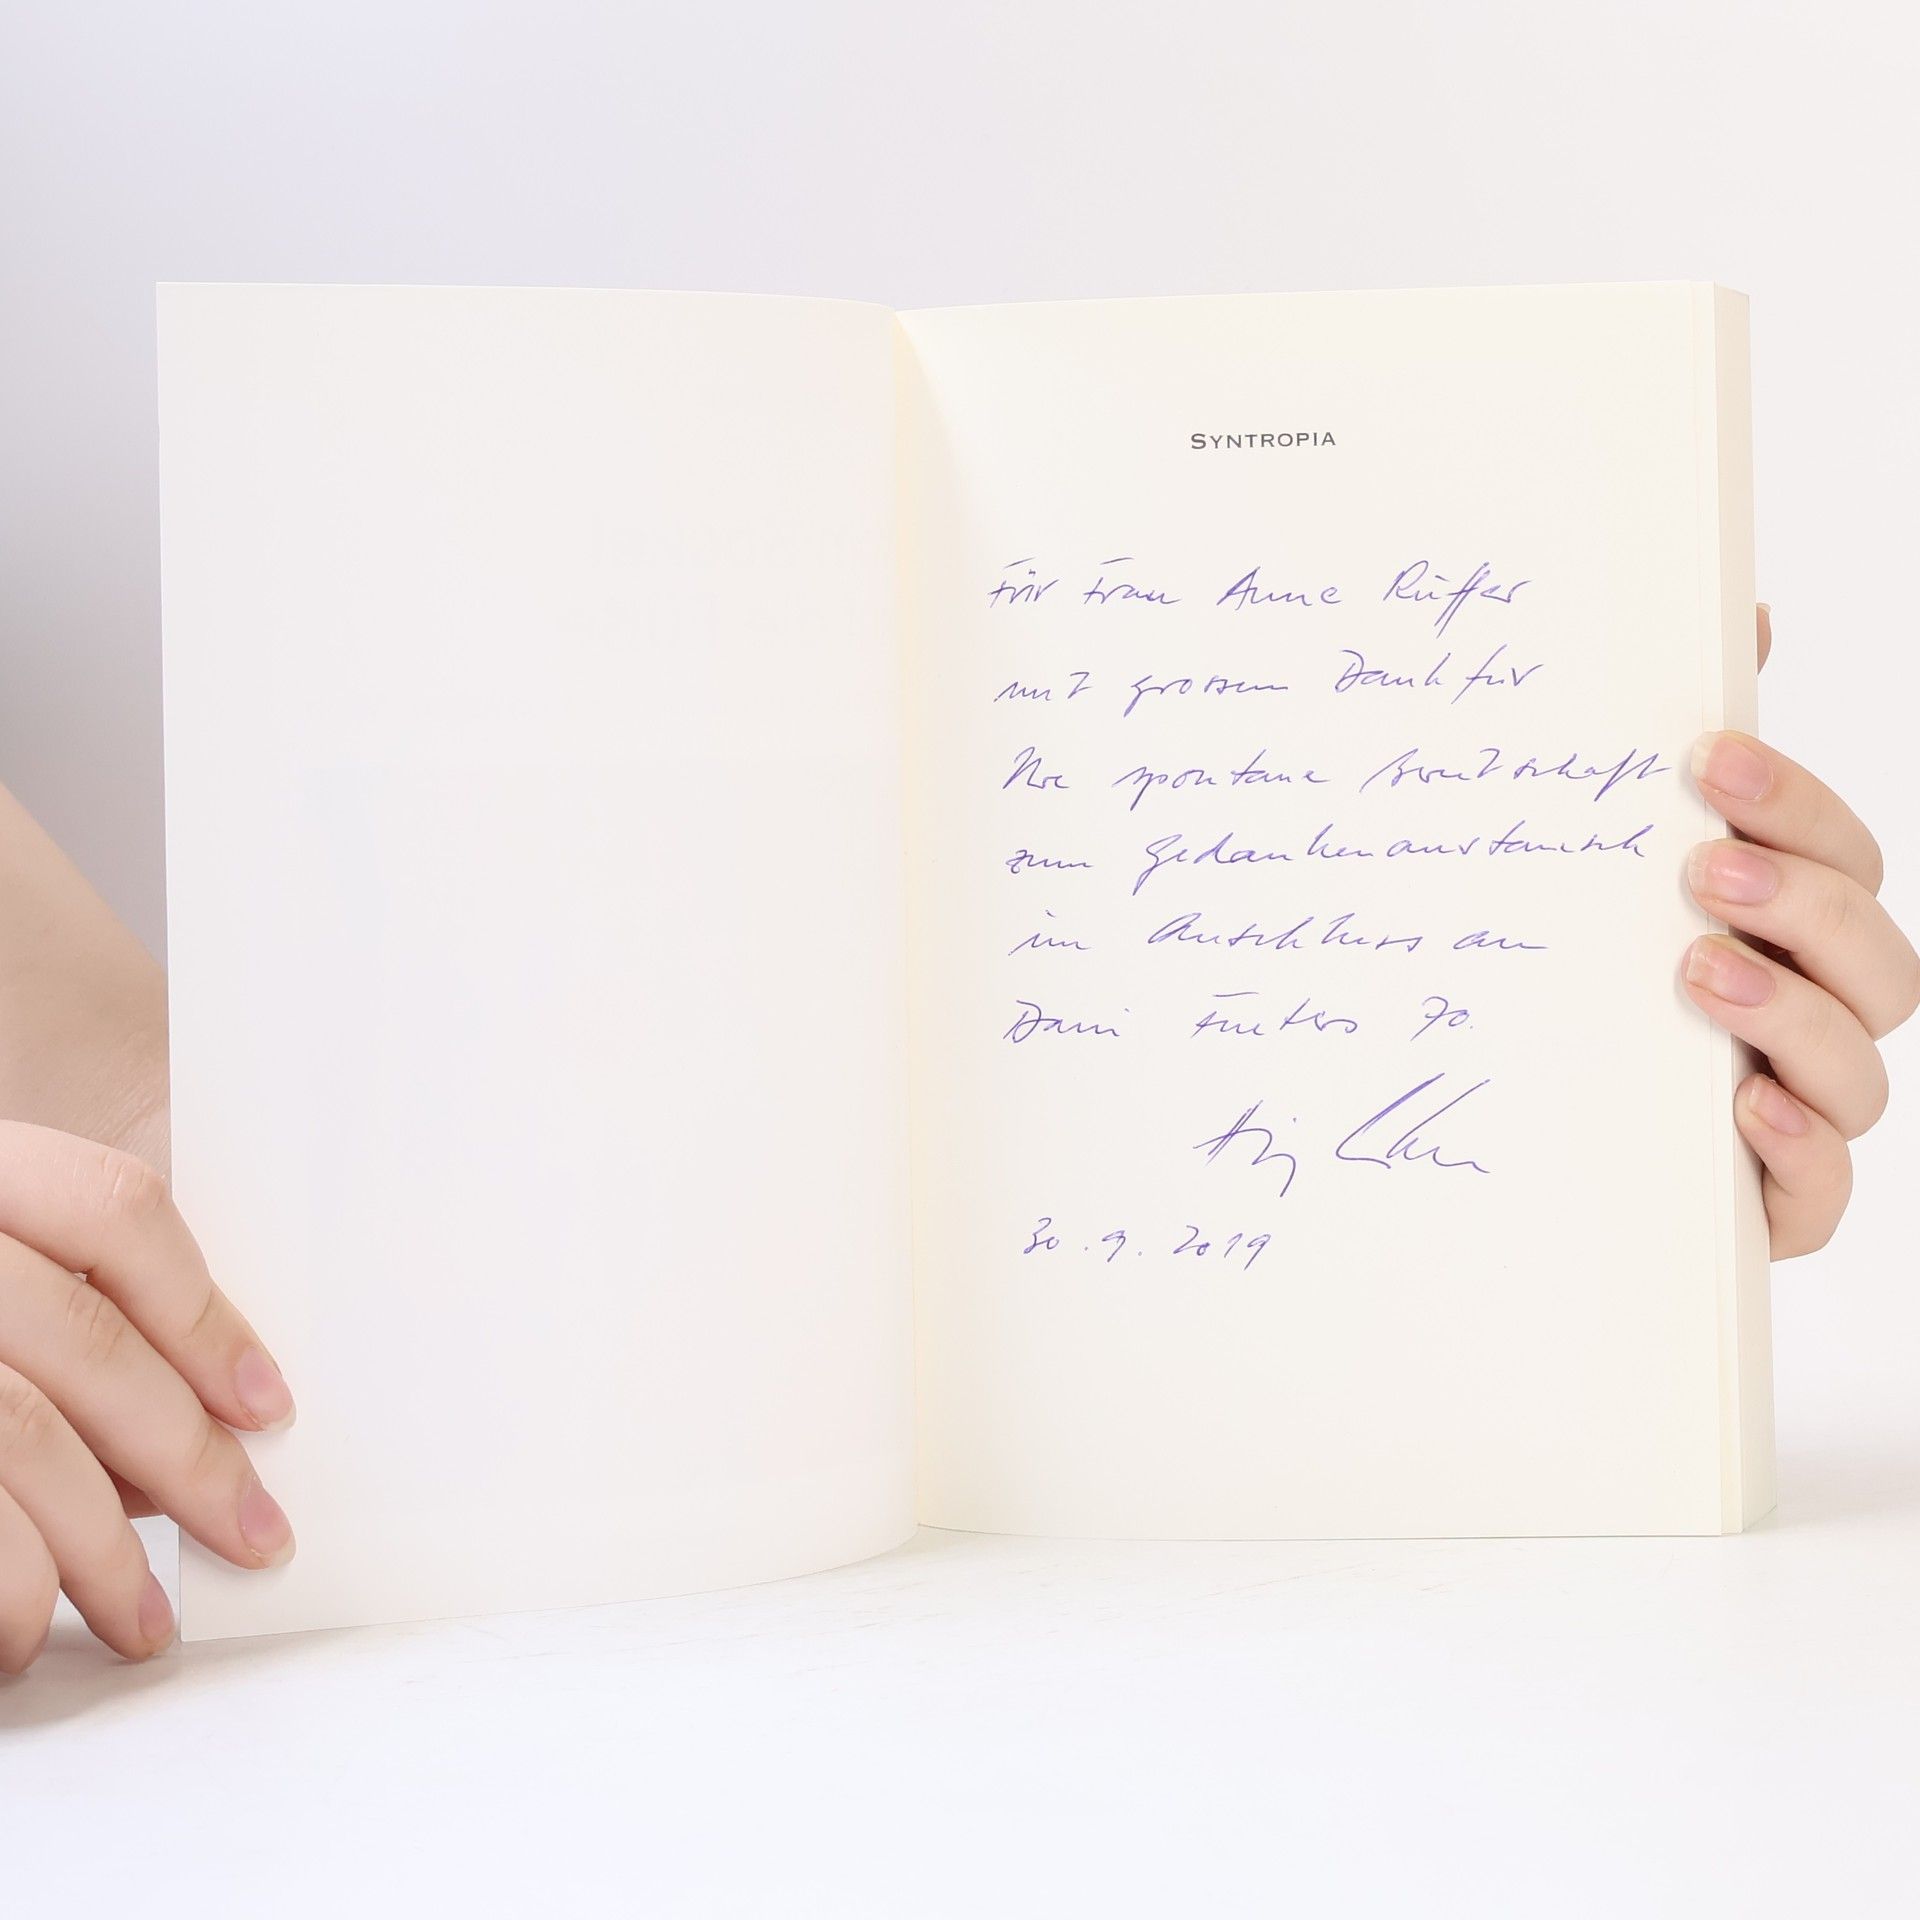 SYNTROPIA
Für Frau Anne Rüffer
mit grossem Dank für
Ihre spontane Bereitschaft
zum Gedankenaustausch
im Anschluss an
Dani Fueters 70.
30.9.2019